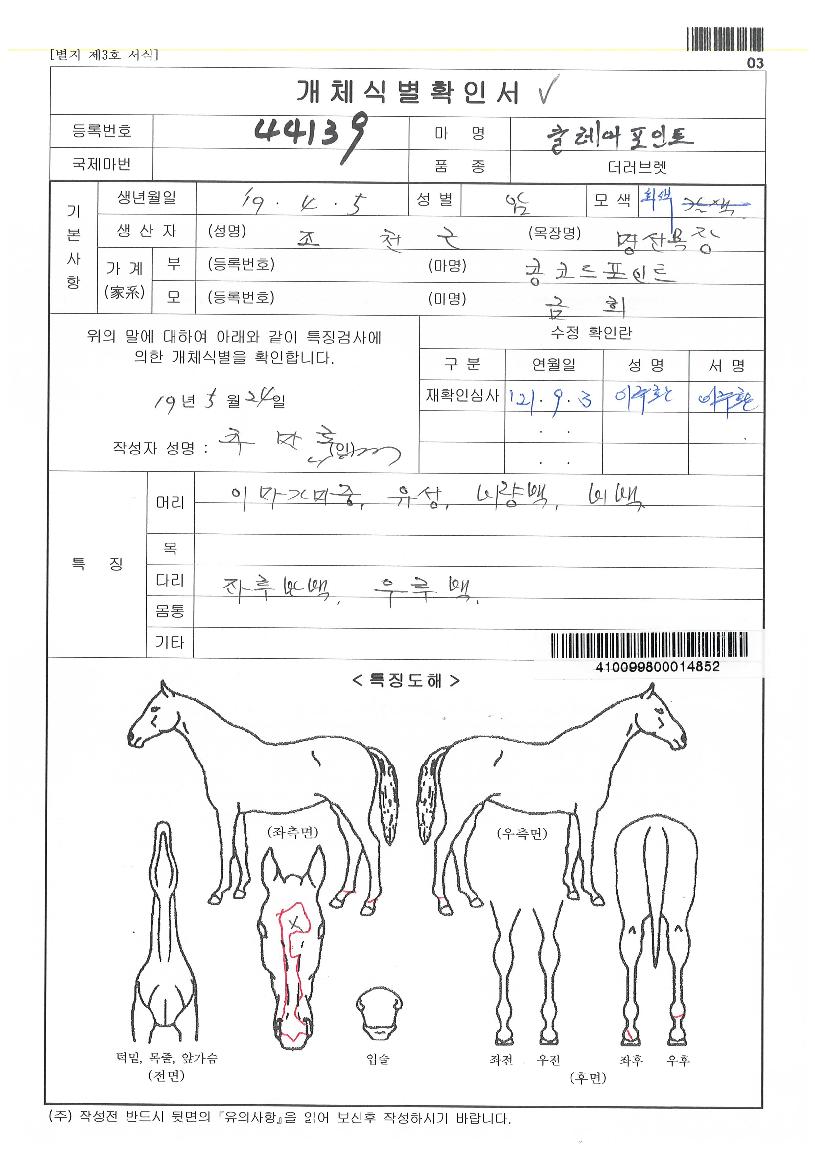 [별지 제3호 서식]
03
개체식별확인서 ✓
등록번호 44139 마 명 클레마포인트
국제마번 품 종 더러브렛
기본사항
생년월일 '19. 4. 5 성별 암 모색 회색
생산자 (성명) 조천군 (목장명) 명산목장
가계(家系) 부 (등록번호) (마명) 콩코드포인트
모 (등록번호) (미명) 금희
위의 말에 대하여 아래와 같이 특징검사에
의한 개체식별을 확인합니다.
19년 5월 24일
작성자 성명 : (인)
수정 확인란
구분 연월일 성명 서명
재확인심사 '21. 9. 3
. .
. .
특 징
머리 이마가마중, 유성, 비량백, 비백
목
다리 좌후백, 우후백.
몸통
기타
410099800014852
< 특징도해 >
(좌측면) (우측면)
턱밑, 목줄, 앞가슴 입술 좌전 우전 좌후 우후
(전면) (후면)
(주) 작성전 반드시 뒷면의 『유의사항』을 읽어 보신후 작성하시기 바랍니다.